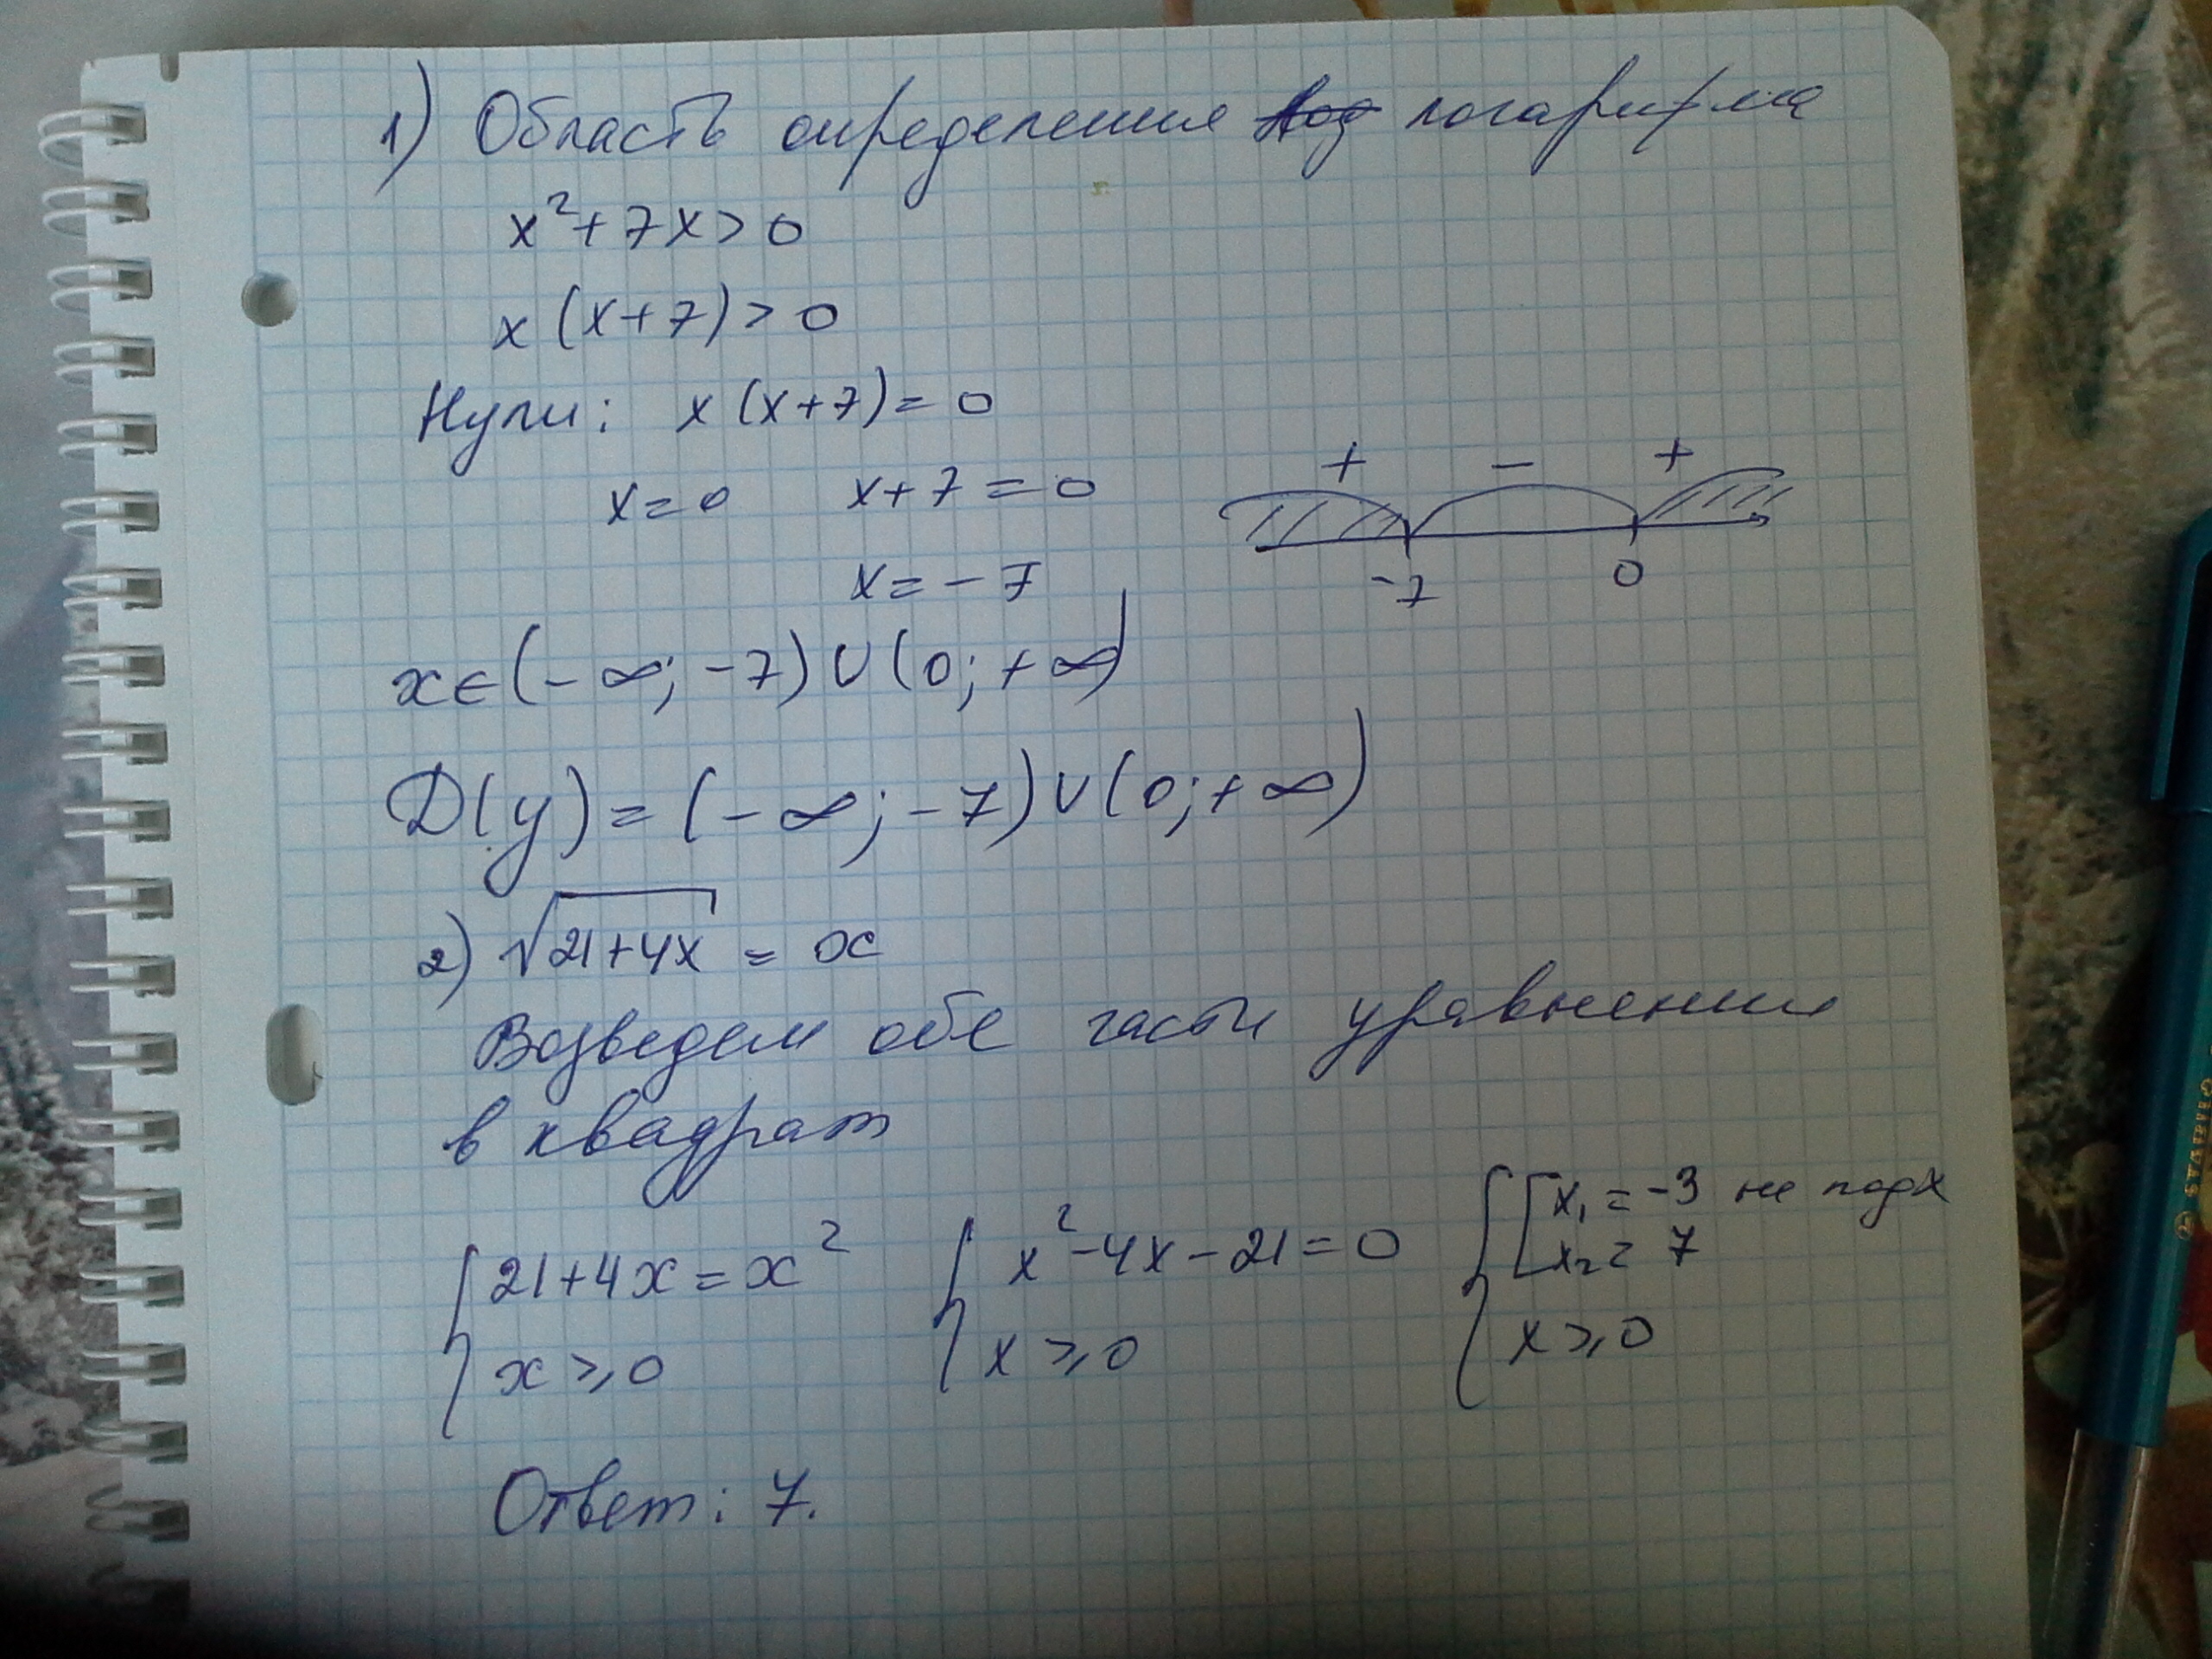 1) Область определения логарифма
x²+7x>0
x(x+7)>0
Нули: x(x+7)=0
x=0 x+7=0
+ - +
-7 0
x=-7
x∈(-∞;-7)∪(0;+∞)
D(y)=(-∞;-7)∪(0;+∞)
2) √21+4x = x
Возведем обе части уравнения
в квадрат
{21+4x=x² {x²-4x-21=0 {[x₁=-3 не подх
x₂=7
x≥0 x≥0 x≥0
Ответ: 7.